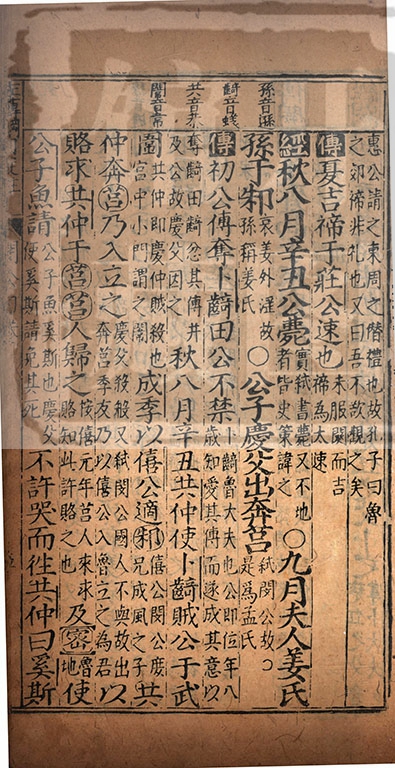 孫音遜
齮音蟻
共音恭
闈音韋
惠公請之東周之僭禮也故孔子曰魯之郊禘非礼也又曰吾不欲觀之矣
傳夏吉禘于莊公速也未服闋而吉禘為太速
經秋八月辛丑公薨實弒書薨又不地者皆史策諱之〇九月夫人姜氏
孫于邾哀姜外淫故孫稱姜氏〇公子慶父出奔莒弒閔公故是爲孟氏
傳初公傅奪卜齮田公不禁卜齮魯大夫也公即位年八歲知愛其傅而遂成其意以
奪齮田齮忿其傅并及公故慶父因之秋八月辛丑共仲使卜齮賊公于武
闈共仲即慶仲賊殺也宮中小門謂之闈成季以僖公適邾僖公閔公庶兄成風之子共
仲奔莒乃入立之慶父殺般又弒閔公國人不與故出奔莒季友乃以僖公入魯立之為君以
賂求共仲于莒莒人歸之僖元年莒人來求賂知此許賂之也及密魯地使
公子魚請公子魚奚斯也慶父使奚斯請免其死不許哭而往共仲曰奚斯